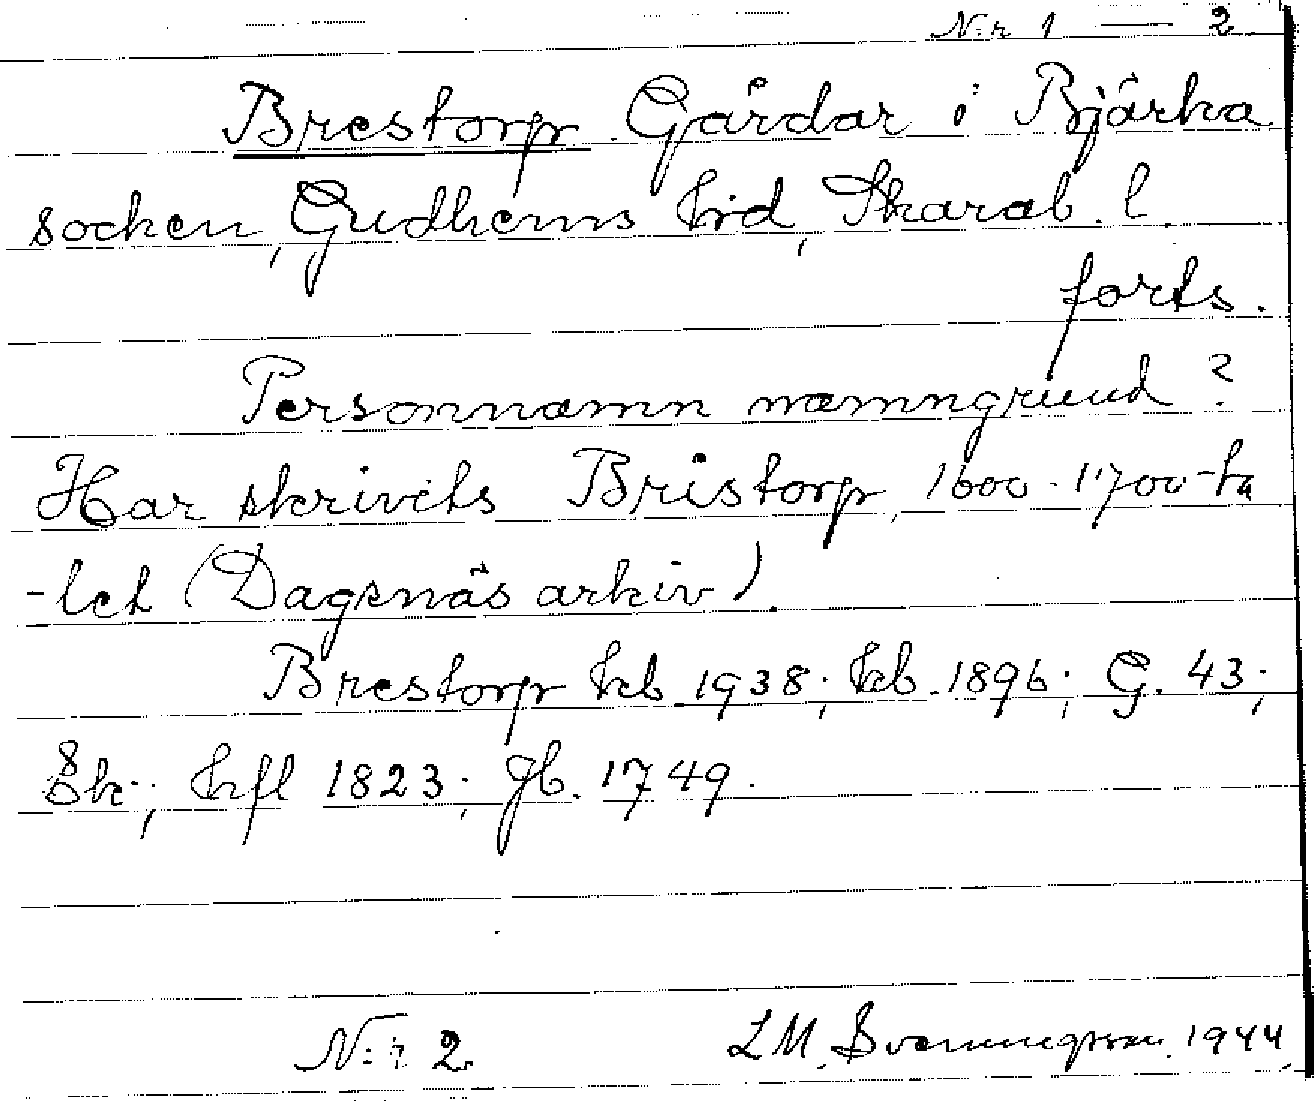 N:r 1 — 2
Brestorp Gårdar i Bjärka
socken, Gudhems hrd, Skarab. l.
forts.
Personnamn namngrund?
Har skrivits Bristorp, 1600-1700-ta
-let (Dagsnäs arkiv).
Brestorp kb 1938; kb. 1896; G. 43;
Sk.; hfl 1823; Jb. 1749.
N:r 2. L M. Svenungsson. 1944.